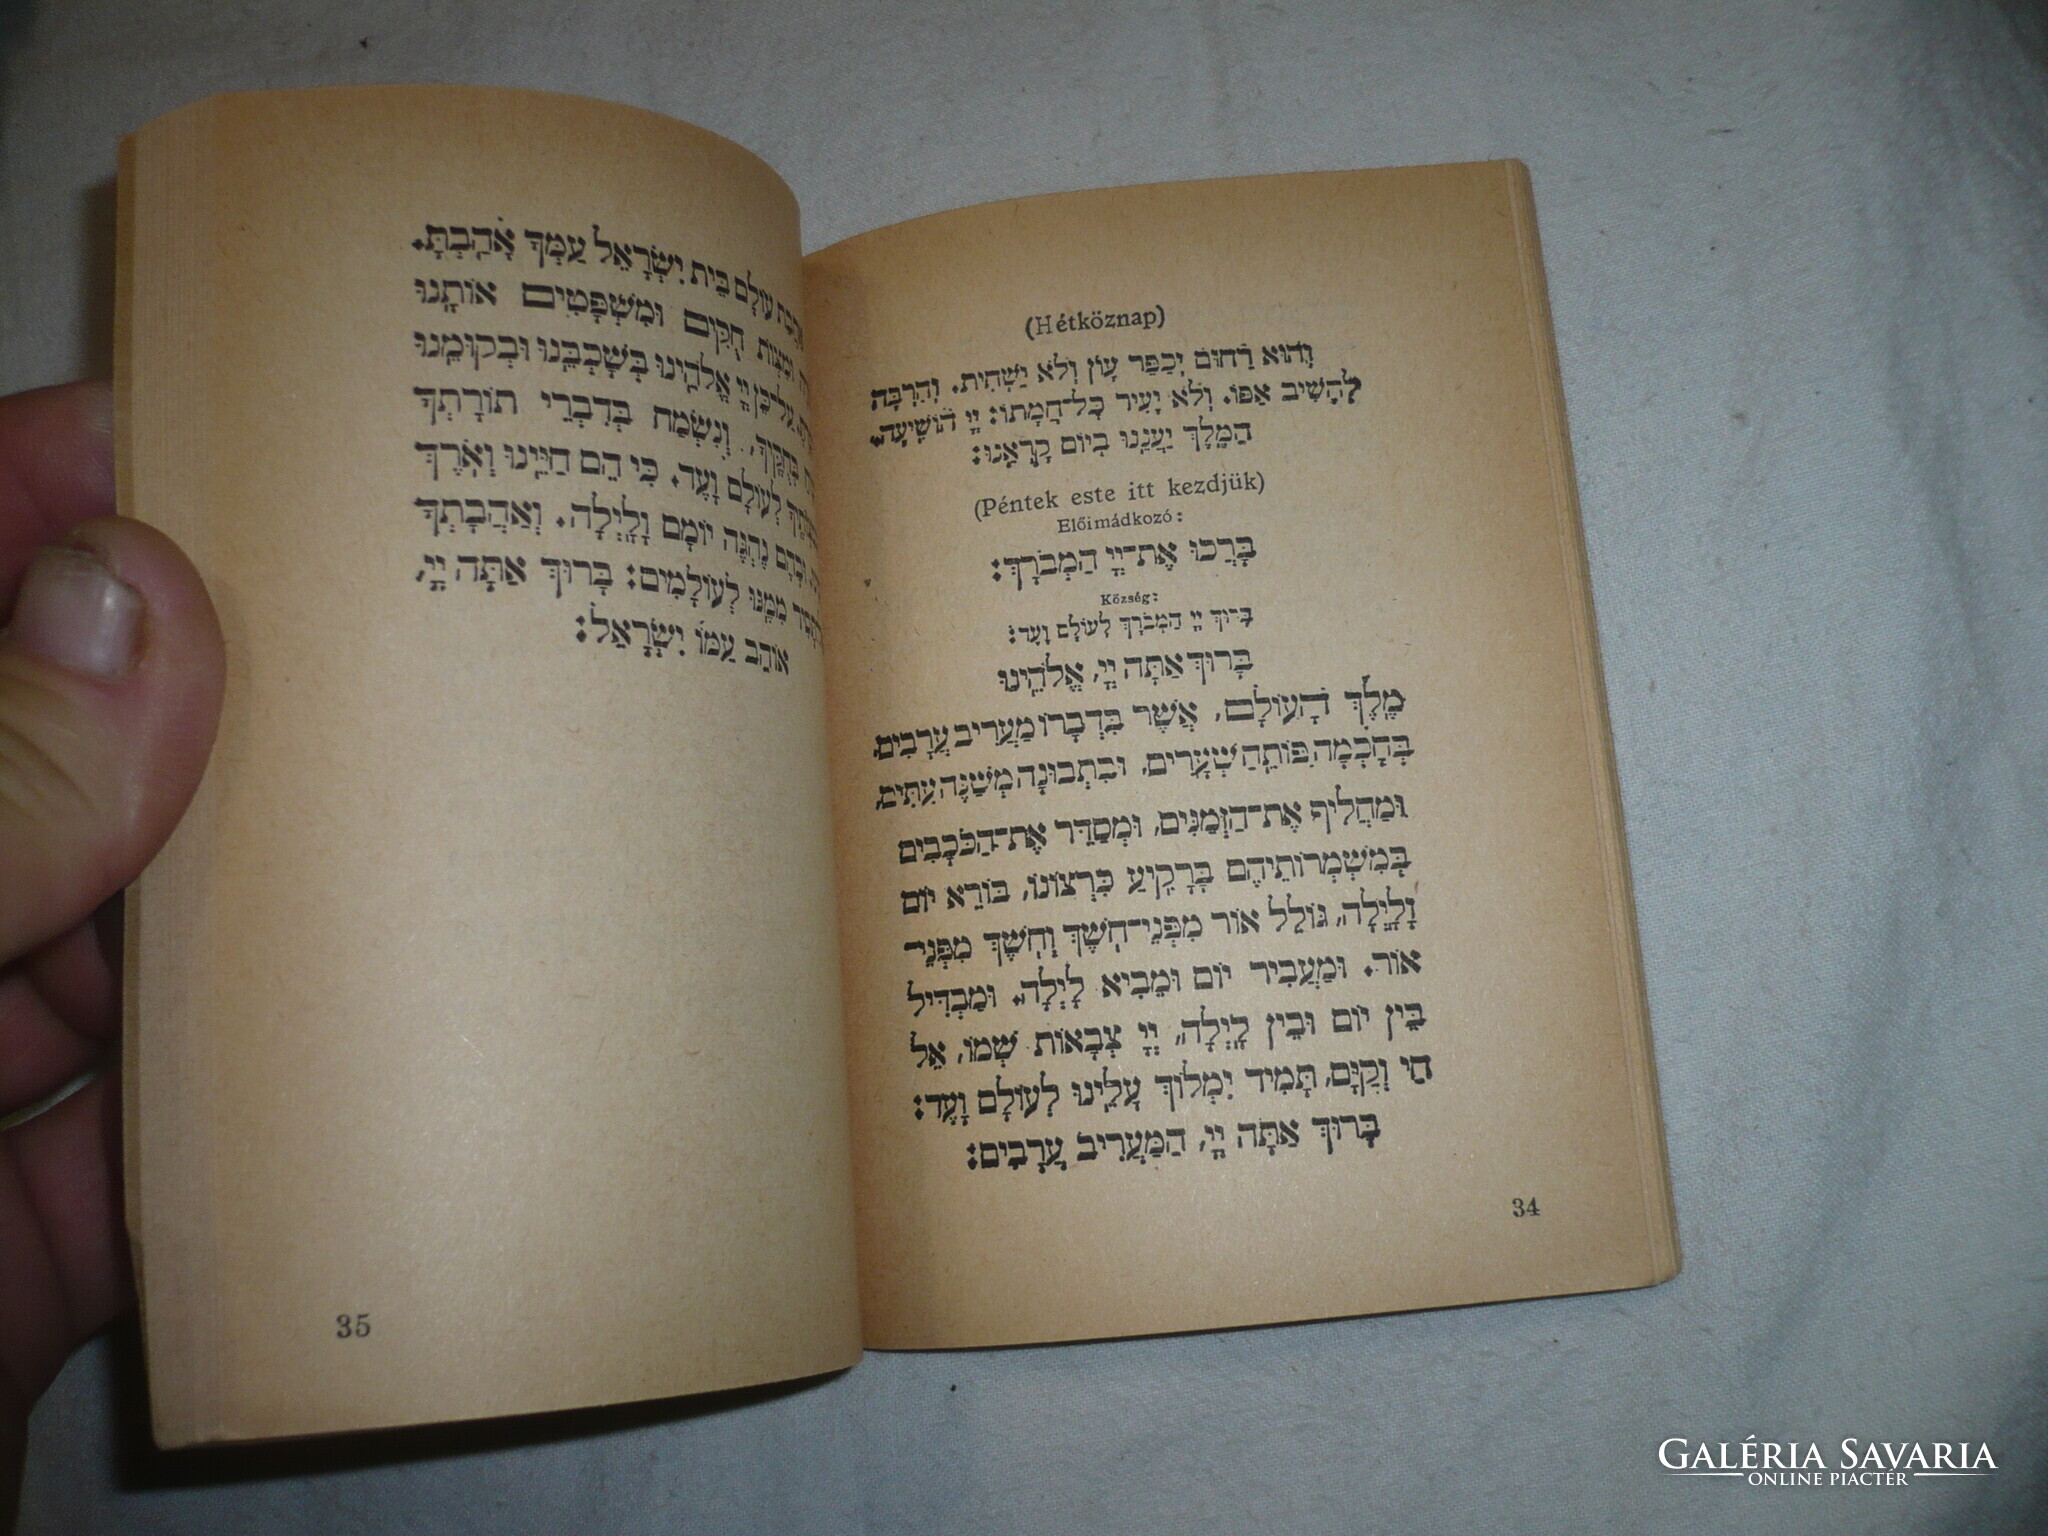 (Hétköznap)
וְהוּא רַחוּם יְכַפֵּר עָוֹן וְלֹא יַשְׁחִית. וְהִרְבָּה
לְהָשִׁיב אַפּוֹ. וְלֹא יָעִיר כָּל־חֲמָתוֹ: יְיָ הוֹשִׁיעָה.
הַמֶּלֶךְ יַעֲנֵנוּ בְיוֹם קָרְאֵנוּ:
(Péntek este itt kezdjük)
Előimádkozó:
בָּרְכוּ אֶת־יְיָ הַמְבֹרָךְ:
Község:
בָּרוּךְ יְיָ הַמְבֹרָךְ לְעוֹלָם וָעֶד:
בָּרוּךְ אַתָּה יְיָ, אֱלֹהֵינוּ
מֶלֶךְ הָעוֹלָם, אֲשֶׁר בִּדְבָרוֹ מַעֲרִיב עֲרָבִים.
בְּחָכְמָה פּוֹתֵחַ שְׁעָרִים, וּבִתְבוּנָה מְשַׁנֶּה עִתִּים,
וּמַחֲלִיף אֶת־הַזְּמַנִּים, וּמְסַדֵּר אֶת־הַכֹּכָבִים
בְּמִשְׁמְרוֹתֵיהֶם בָּרָקִיעַ כִּרְצוֹנוֹ, בּוֹרֵא יוֹם
וָלָיְלָה, גּוֹלֵל אוֹר מִפְּנֵי־חֹשֶׁךְ וְחֹשֶׁךְ מִפְּנֵי־
אוֹר. וּמַעֲבִיר יוֹם וּמֵבִיא לָיְלָה. וּמַבְדִּיל
בֵּין יוֹם וּבֵין לָיְלָה, יְיָ צְבָאוֹת שְׁמוֹ, אֵל
חַי וְקַיָּם, תָּמִיד יִמְלוֹךְ עָלֵינוּ לְעוֹלָם וָעֶד:
בָּרוּךְ אַתָּה יְיָ, הַמַּעֲרִיב עֲרָבִים:
34
עוֹלָם בֵּית יִשְׂרָאֵל עַמְּךָ אָהָבְתָּ.
וּמִצְוֹת חֻקִּים וּמִשְׁפָּטִים אוֹתָנוּ
עַל־כֵּן יְיָ אֱלֹהֵינוּ בְּשָׁכְבֵּנוּ וּבְקוּמֵנוּ
בְּחֻקֶּיךָ, וְנִשְׂמַח בְּדִבְרֵי תוֹרָתְךָ
לְעוֹלָם וָעֶד. כִּי הֵם חַיֵּינוּ וְאֹרֶךְ
וּבָהֶם נֶהְגֶּה יוֹמָם וָלָיְלָה. וְאַהֲבָתְךָ
מִמֶּנּוּ לְעוֹלָמִים: בָּרוּךְ אַתָּה יְיָ,
אוֹהֵב עַמּוֹ יִשְׂרָאֵל:
35
GALÉRIA SAVARIA
ONLINE PIACTÉR